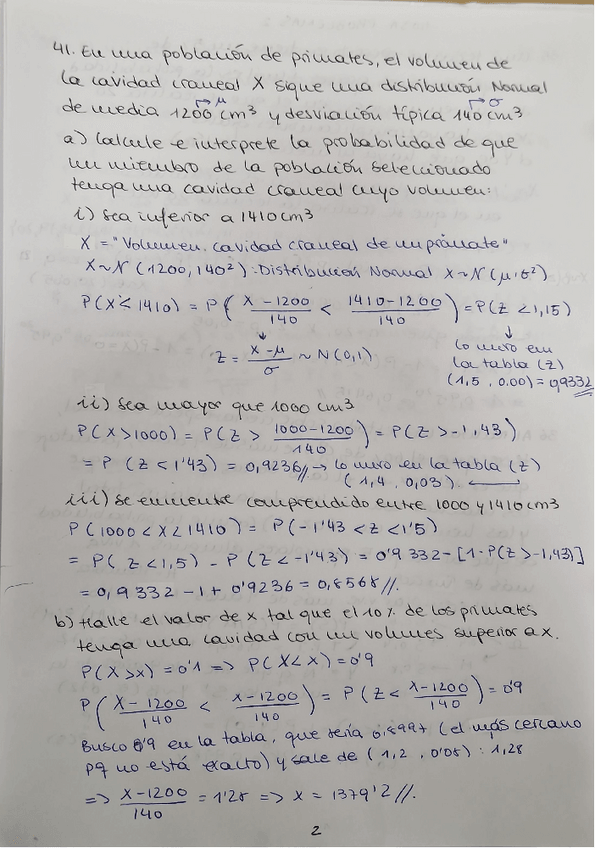 41. En una población de primates, el volumen de
la cavidad craneal X sigue una distribución Normal
→ μ → σ
de media 1200 cm³ y desviación típica 140 cm³
a) Calcule e interprete la probabilidad de que
un miembro de la población seleccionado
tenga una cavidad craneal cuyo volumen:
i) Sea inferior a 1410 cm³
X = "Volumen cavidad craneal de un primate"
X ~ N (1200, 140²): Distribución Normal X ~ N (μ, σ²)
P(X < 1410) = P( (X - 1200)/140 < (1410 - 1200)/140 ) = P(Z < 1,15)
Z = (X - μ)/σ ~ N(0,1)
↓ lo miro en
la tabla (z)
(1,5, 0.00) = 0,9332
ii) Sea mayor que 1000 cm³
P(X > 1000) = P(Z > (1000 - 1200)/140) = P(Z > -1,43)
= P (Z < 1'43) = 0,9236 // → lo miro en la tabla (z)
(1,4, 0,03).
iii) Se encuentre comprendido entre 1000 y 1410 cm³
P(1000 < X < 1410) = P(-1'43 < Z < 1'5)
= P( Z < 1,5) - P(Z < -1'43) = 0'9332 - [1 - P(Z > -1,43)]
= 0,9332 - 1 + 0'9236 = 0,8568 //.
b) Halle el valor de x tal que el 10% de los primates
tenga una cavidad con un volumen superior a x.
P(X > x) = 0'1 => P(X < x) = 0'9
P( (X - 1200)/140 < (x - 1200)/140 ) = P(Z < (x - 1200)/140) = 0'9
Busco 0'9 en la tabla, que sería 0,8997 (el más cercano
pq no está exacto) y sale de (1,2, 0'08): 1,28
=> (X - 1200)/140 = 1'28 => x = 1379'2 //.
2